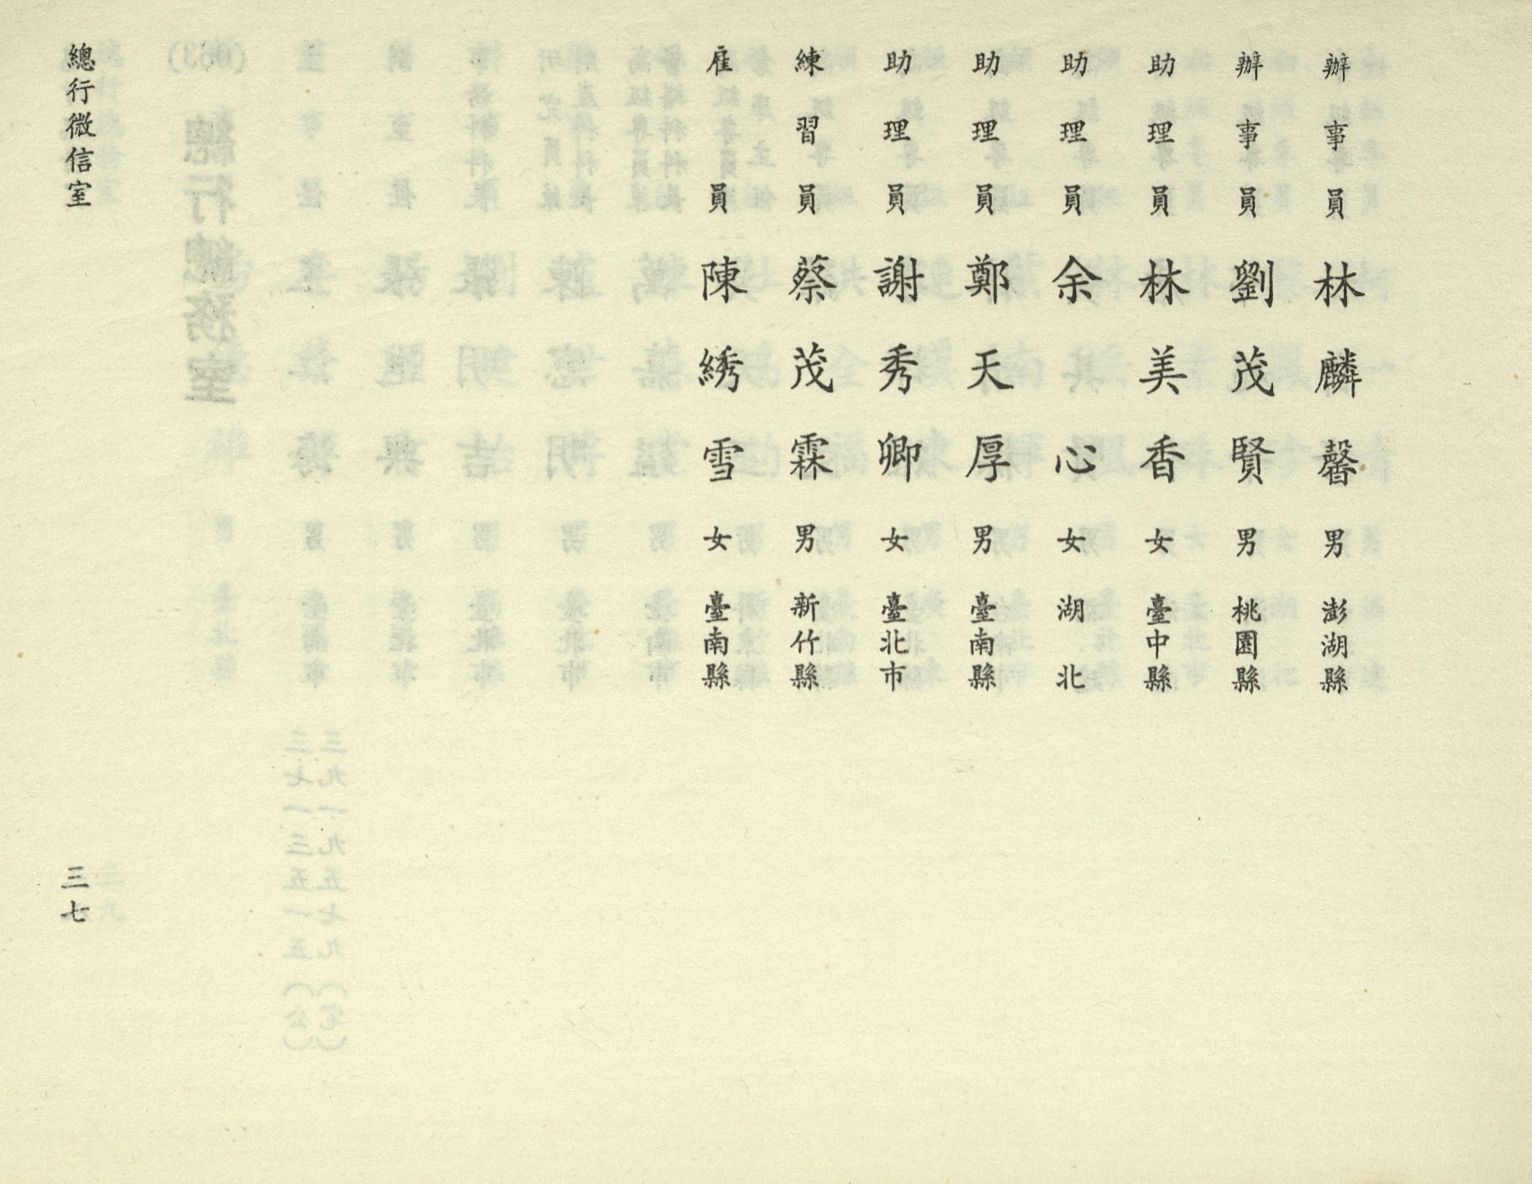 辦事員 林麟馨 男 澎湖縣
辦事員 劉茂賢 男 桃園縣
助理員 林美香 女 臺中縣
助理員 余心 女 湖北
助理員 鄭天厚 男 臺南縣
助理員 謝秀卿 女 臺北市
練習員 蔡茂霖 男 新竹縣
雇員 陳綉雪 女 臺南縣
總行徵信室
三七